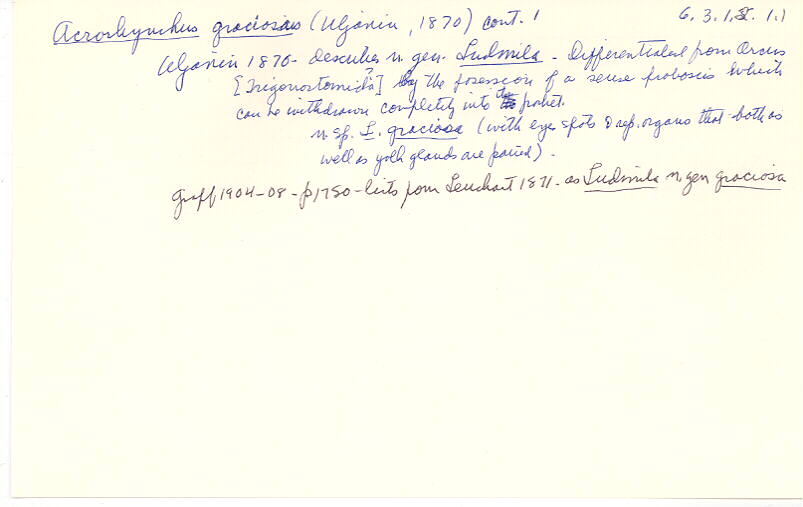 Acrorhynchus graciosus (Uljanin, 1870) cont. 1 6.3.1.X.1.1
Uljanin 1870- describes n. gen. Ludmila - Differentiated from Orcus
[Trigonostomida?] by the posession of a sense proboscis which
can be withdrawn completely into the pocket.
n. sp. L. graciosa (with eye spots & rep. organs that both as
well as yolk glands are paired).
Graff 1904-08 - p1750 - lists from Leuckart 1871 - as Ludmila n. gen graciosa